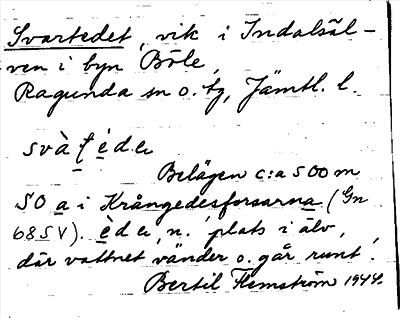 Svartedet, vik i Indalsäl-
ven i byn Böle,
Ragunda sn o. tg, Jämtl. l.
svàṭède
Belägen c:a 500 m
SO a i Krångedesforsarna (Gn
68SV). ède, n., plats i älv,
där vattnet vänder o. går runt.
Bertil Flemström 1944.